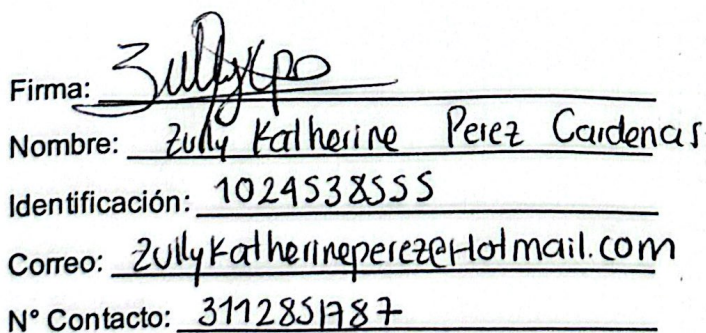 Firma: Zullykpo
Nombre: Zully Katherine Perez Cardenas
Identificación: 1024538555
Correo: Zullykatherineperez@Hotmail.com
N° Contacto: 3112851787